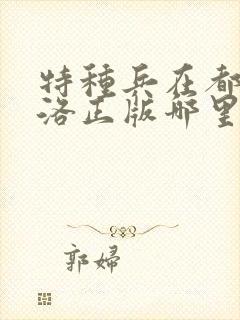 特種兵在都
洛正版哪里
郭婦